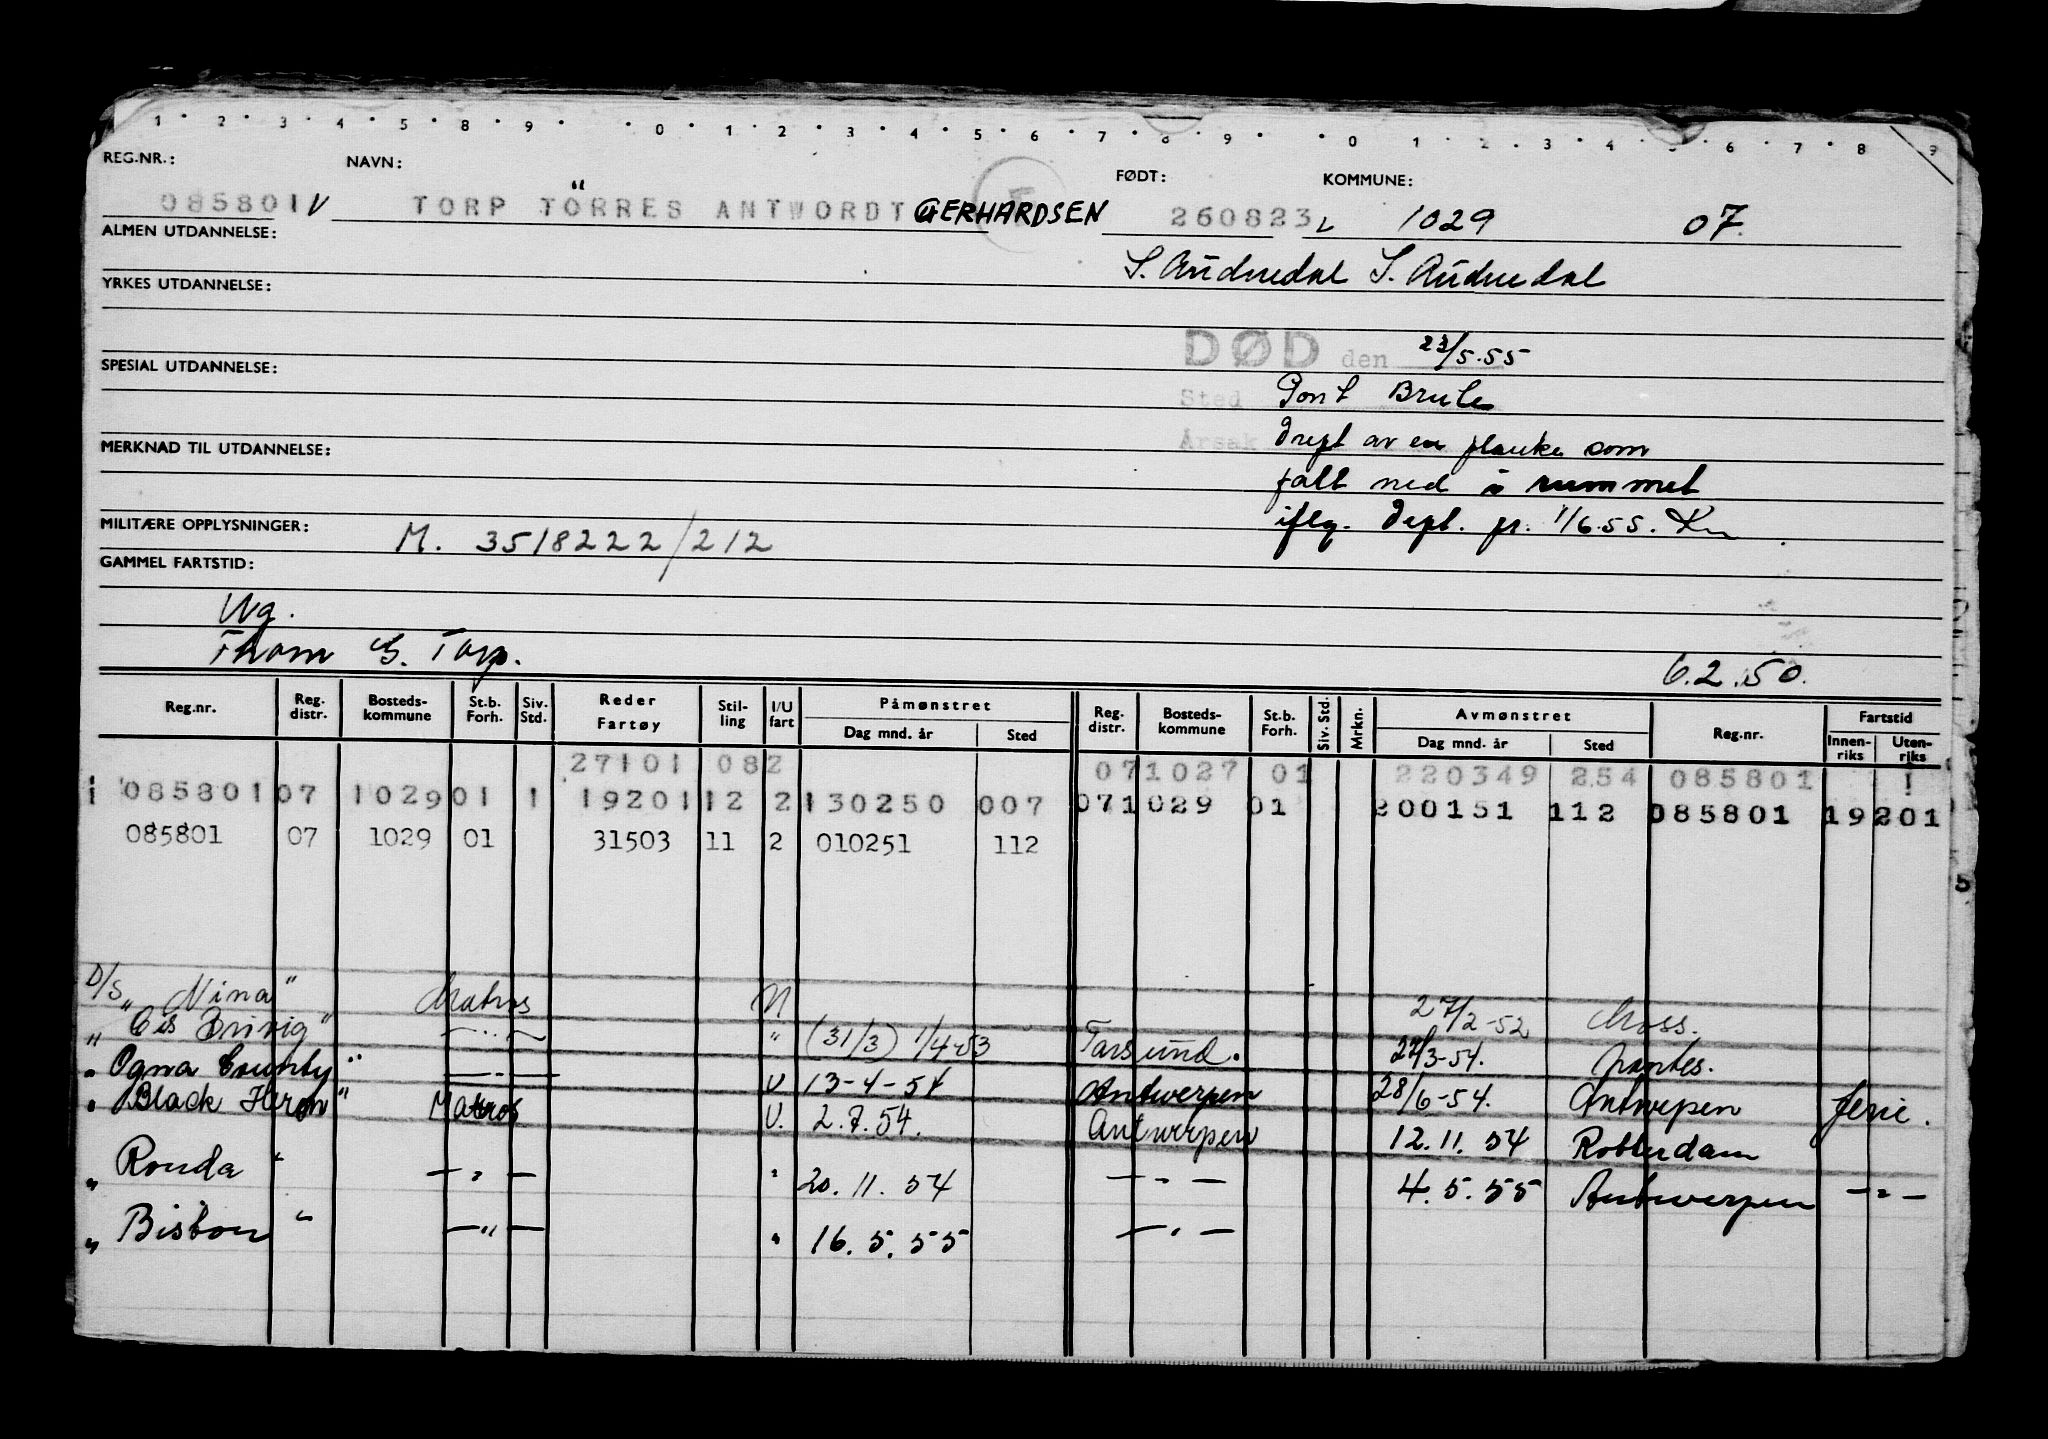 1 · 2 · 3 · 4 · 5 · 8 · 9 · · 0 · 1 · 2 · 3 · 4 · 5 · 6 · 7 · 8 · 9 · · 0 · 1 · 2 · 3 · 4 · 5 · 6 · 7 · 8 · 9
REG.NR.: NAVN: FØDT: KOMMUNE:
085801 V TORP TÖRRES ANTWORDT GERHARDSEN 260823 1029 07.
ALMEN UTDANNELSE:
S. Audnedal S. Audnedal
YRKES UTDANNELSE:
DØD den 23/5.55
SPESIAL UTDANNELSE:
Sted Pont Brule
Årsak Drept av en planke som
MERKNAD TIL UTDANNELSE:
falt ned i rummet
MILITÆRE OPPLYSNINGER: M. 3518222/212
iflg. dept. pr. 1/6.55. Kn
GAMMEL FARTSTID:
Ug.
Thom G. Torp.
6.2.50.
Reg.nr. Reg. distr. Bosteds-kommune St.b. Forh. Siv. Std. Reder Fartøy Stil-ling I/U fart Påmønstret Dag mnd. år Sted Reg. distr. Bosteds-kommune St.b. Forh. Siv. Std. Mrkn. Avmønstret Dag mnd. år Sted Reg.nr. Fartstid Innen-riks Uten-riks
27101 082 07 1027 01 220349 254 085801 1
085801 07 1029 01 1 19201 12 2 130250 007 07 1029 01 200151 112 085801 19201
085801 07 1029 01 31503 11 2 010251 112
D/S "Nina" Matros N 27/2-52 Moss.
" Cis Brövig" — " — " (31/3) 1/4-53 Farsund. 27/3-54. Nantes.
" Ogna County" — " — U 13-4-54 Antwerpen 28/6-54. Antwerpen ferie.
" Black Heron" Matros U. 2.7.54. Antwerpen 12.11.54 Rotterdam
" Ronda " — " — " 20.11.54 — " — 4.5.55 Antwerpen — " —
" Biston " — " — " 16.5.55 — " —
5